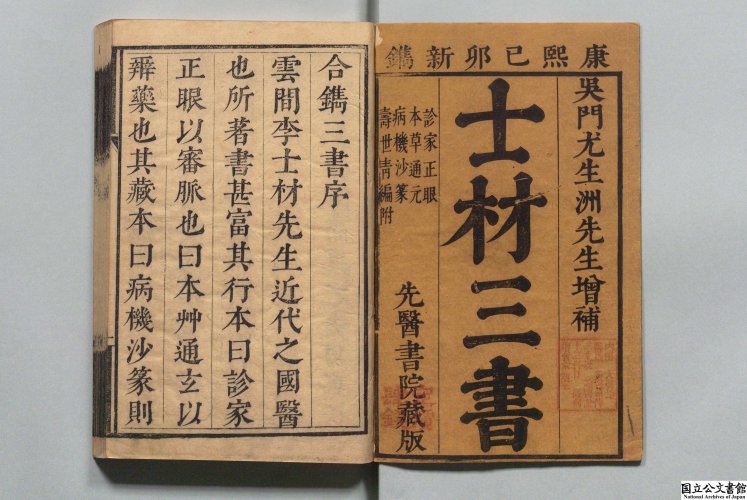 康熙己卯新鐫
吳門尤生洲先生增補
士材三書
診家正眼
本草通元
病機沙篆
壽世青編附
先醫書院藏版
合鐫三書序
雲間李士材先生近代之國醫
也所著書甚富其行本曰診家
正眼以審脈也曰本艸通玄以
辨藥也其藏本曰病機沙篆則
国立公文書館
National Archives of Japan